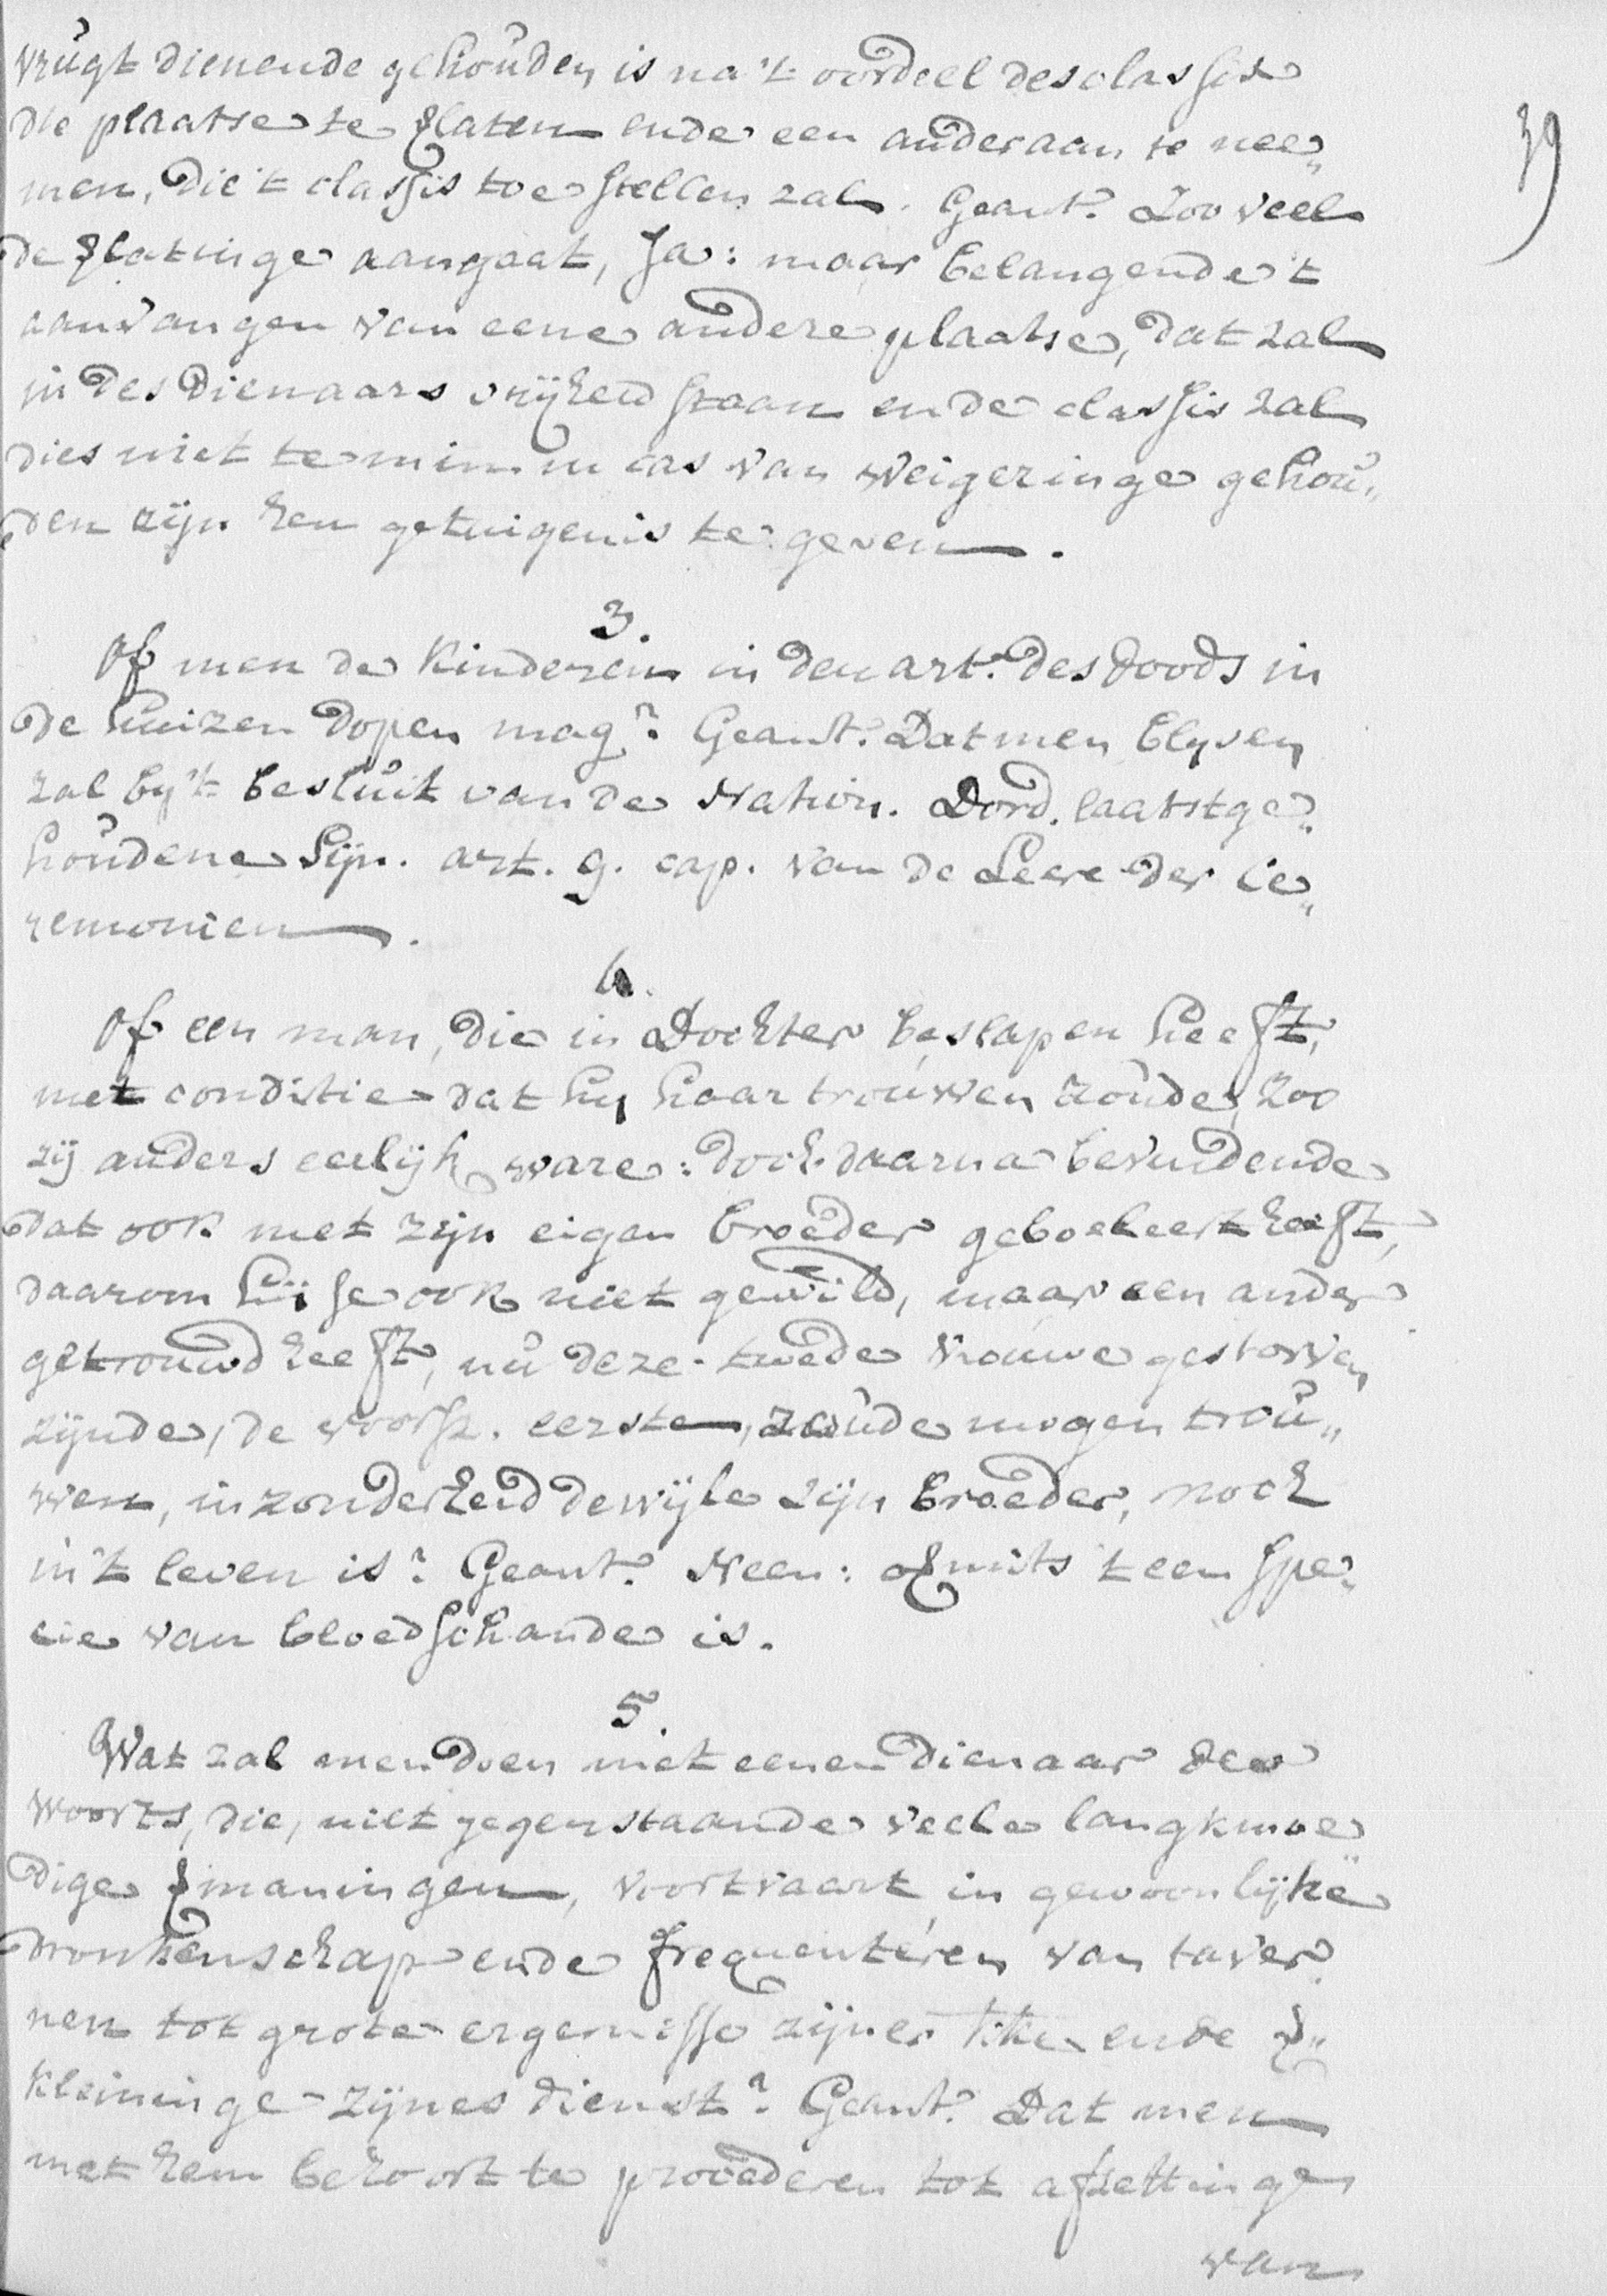 vrugt dienende gehouden is na 't oordeel des classis
die plaatse te verlaten ende een ander aan te nee„
men, die 't classis toe stellen zal. Geant. Zoo veel
de verlatinge aangaat, Ja: maar belangende 't
aanvangen van eene andere plaatse, dat zal
in des Dienaars vrijheid staan ende classis zal
dies niet te min in cas van weigeringe gehou„
den zijn hem getuigenis te geven.
39
3.
Of men de kinderen in den art. des doods in
de huizen dopen mag? Geant. Dat men blyven
zal by 't besluit van de Nation. Dord. laatstge„
houdene Sijn. art. 9. cap. van de Leere der Ce„
remonien.
4.
Of een man, die in Dochter beslapen heeft,
met conditie dat hy haar trouwen zoude, zoo
zij anders eerlijk ware: doch daarna bevindende
dat ook met zijn eigen broeder geboeleert heeft,
daarom hij se ook niet gewild, maar een ander
getrouwd heeft, nu deze twede vrouwe gestorven
zijnde, de voorsz. eerste, zoude mogen trou„
wen, inzonderheid dewijle zijn broeder, noch
in 't leven is? Geant. Neen: overmits 't een spe„
cie van bloedschande is.
5.
Wat zal men doen met eenen Dienaar des
woorts, die, niet gegenstaande veele langkmoe„
dige vermaningen, voortvaart in gewoonlijke
dronkenschap ende frequenteren van taver„
nen tot grote ergernisse zijner kke ende ver„
kleininge zijnes dienst? Geant. Dat men
met hem behoort te procederen tot afzettinge
van